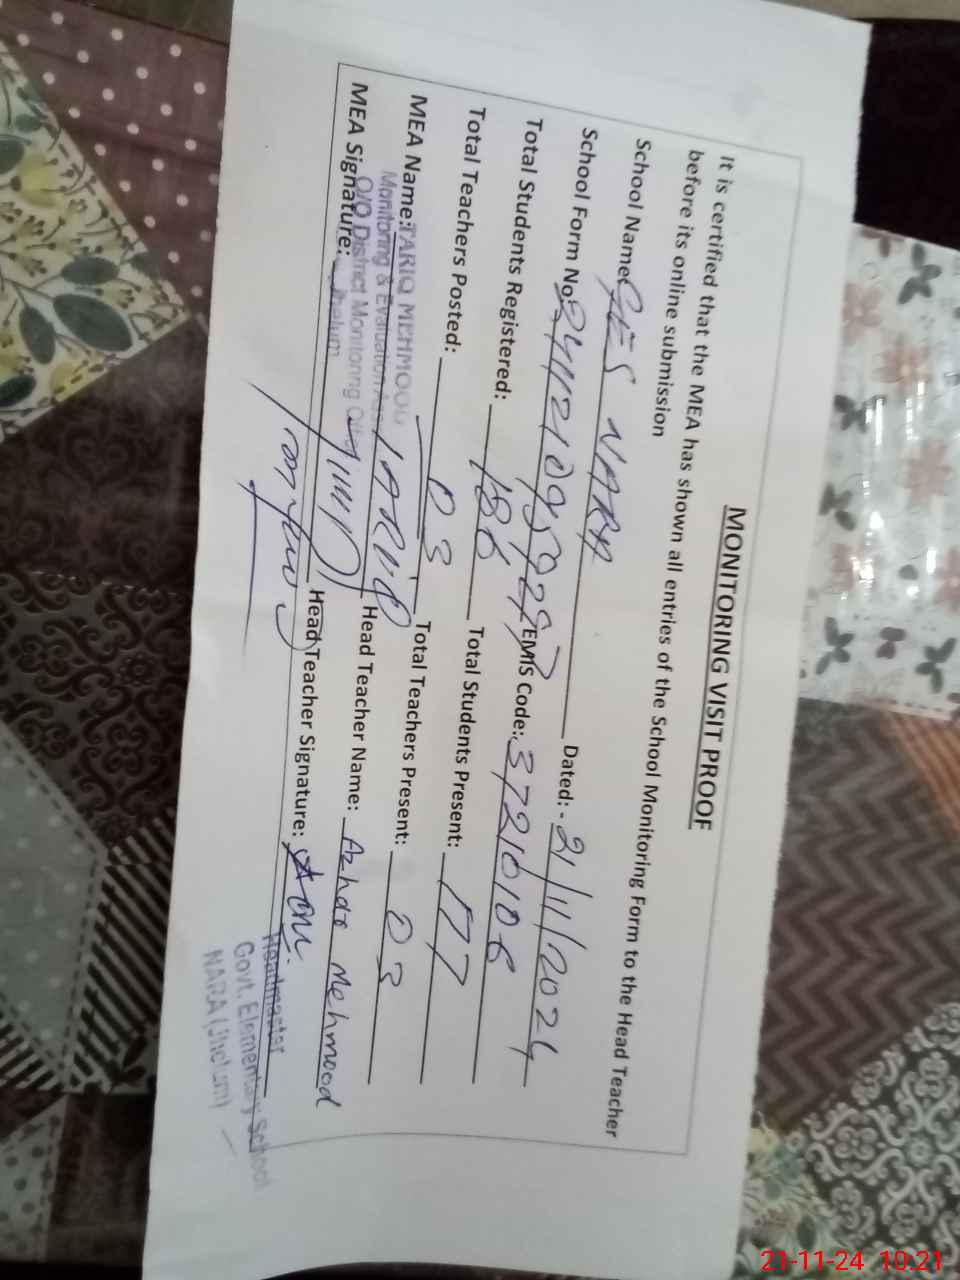 MONITORING VISIT PROOF
It is certified that the MEA has shown all entries of the School Monitoring Form to the Head Teacher
before its online submission
School Name: GES NARA
School Form No: Dated: - 21/11/2024
Total Students Registered: 186 EMIS Code: 37210106
Total Teachers Posted: 03 Total Students Present: 177
MEA Name: TARIQ Total Teachers Present: 03
TARIQ MEHMOOD
Monitoring & Evaluation
O/O District Monitoring
Jhelum
MEA Signature: Head Teacher Name: Azhar Mehmood
Head Teacher Signature:
Headmaster
Govt. Elementary School
NARA (Jhelum)
21-11-24 10:21